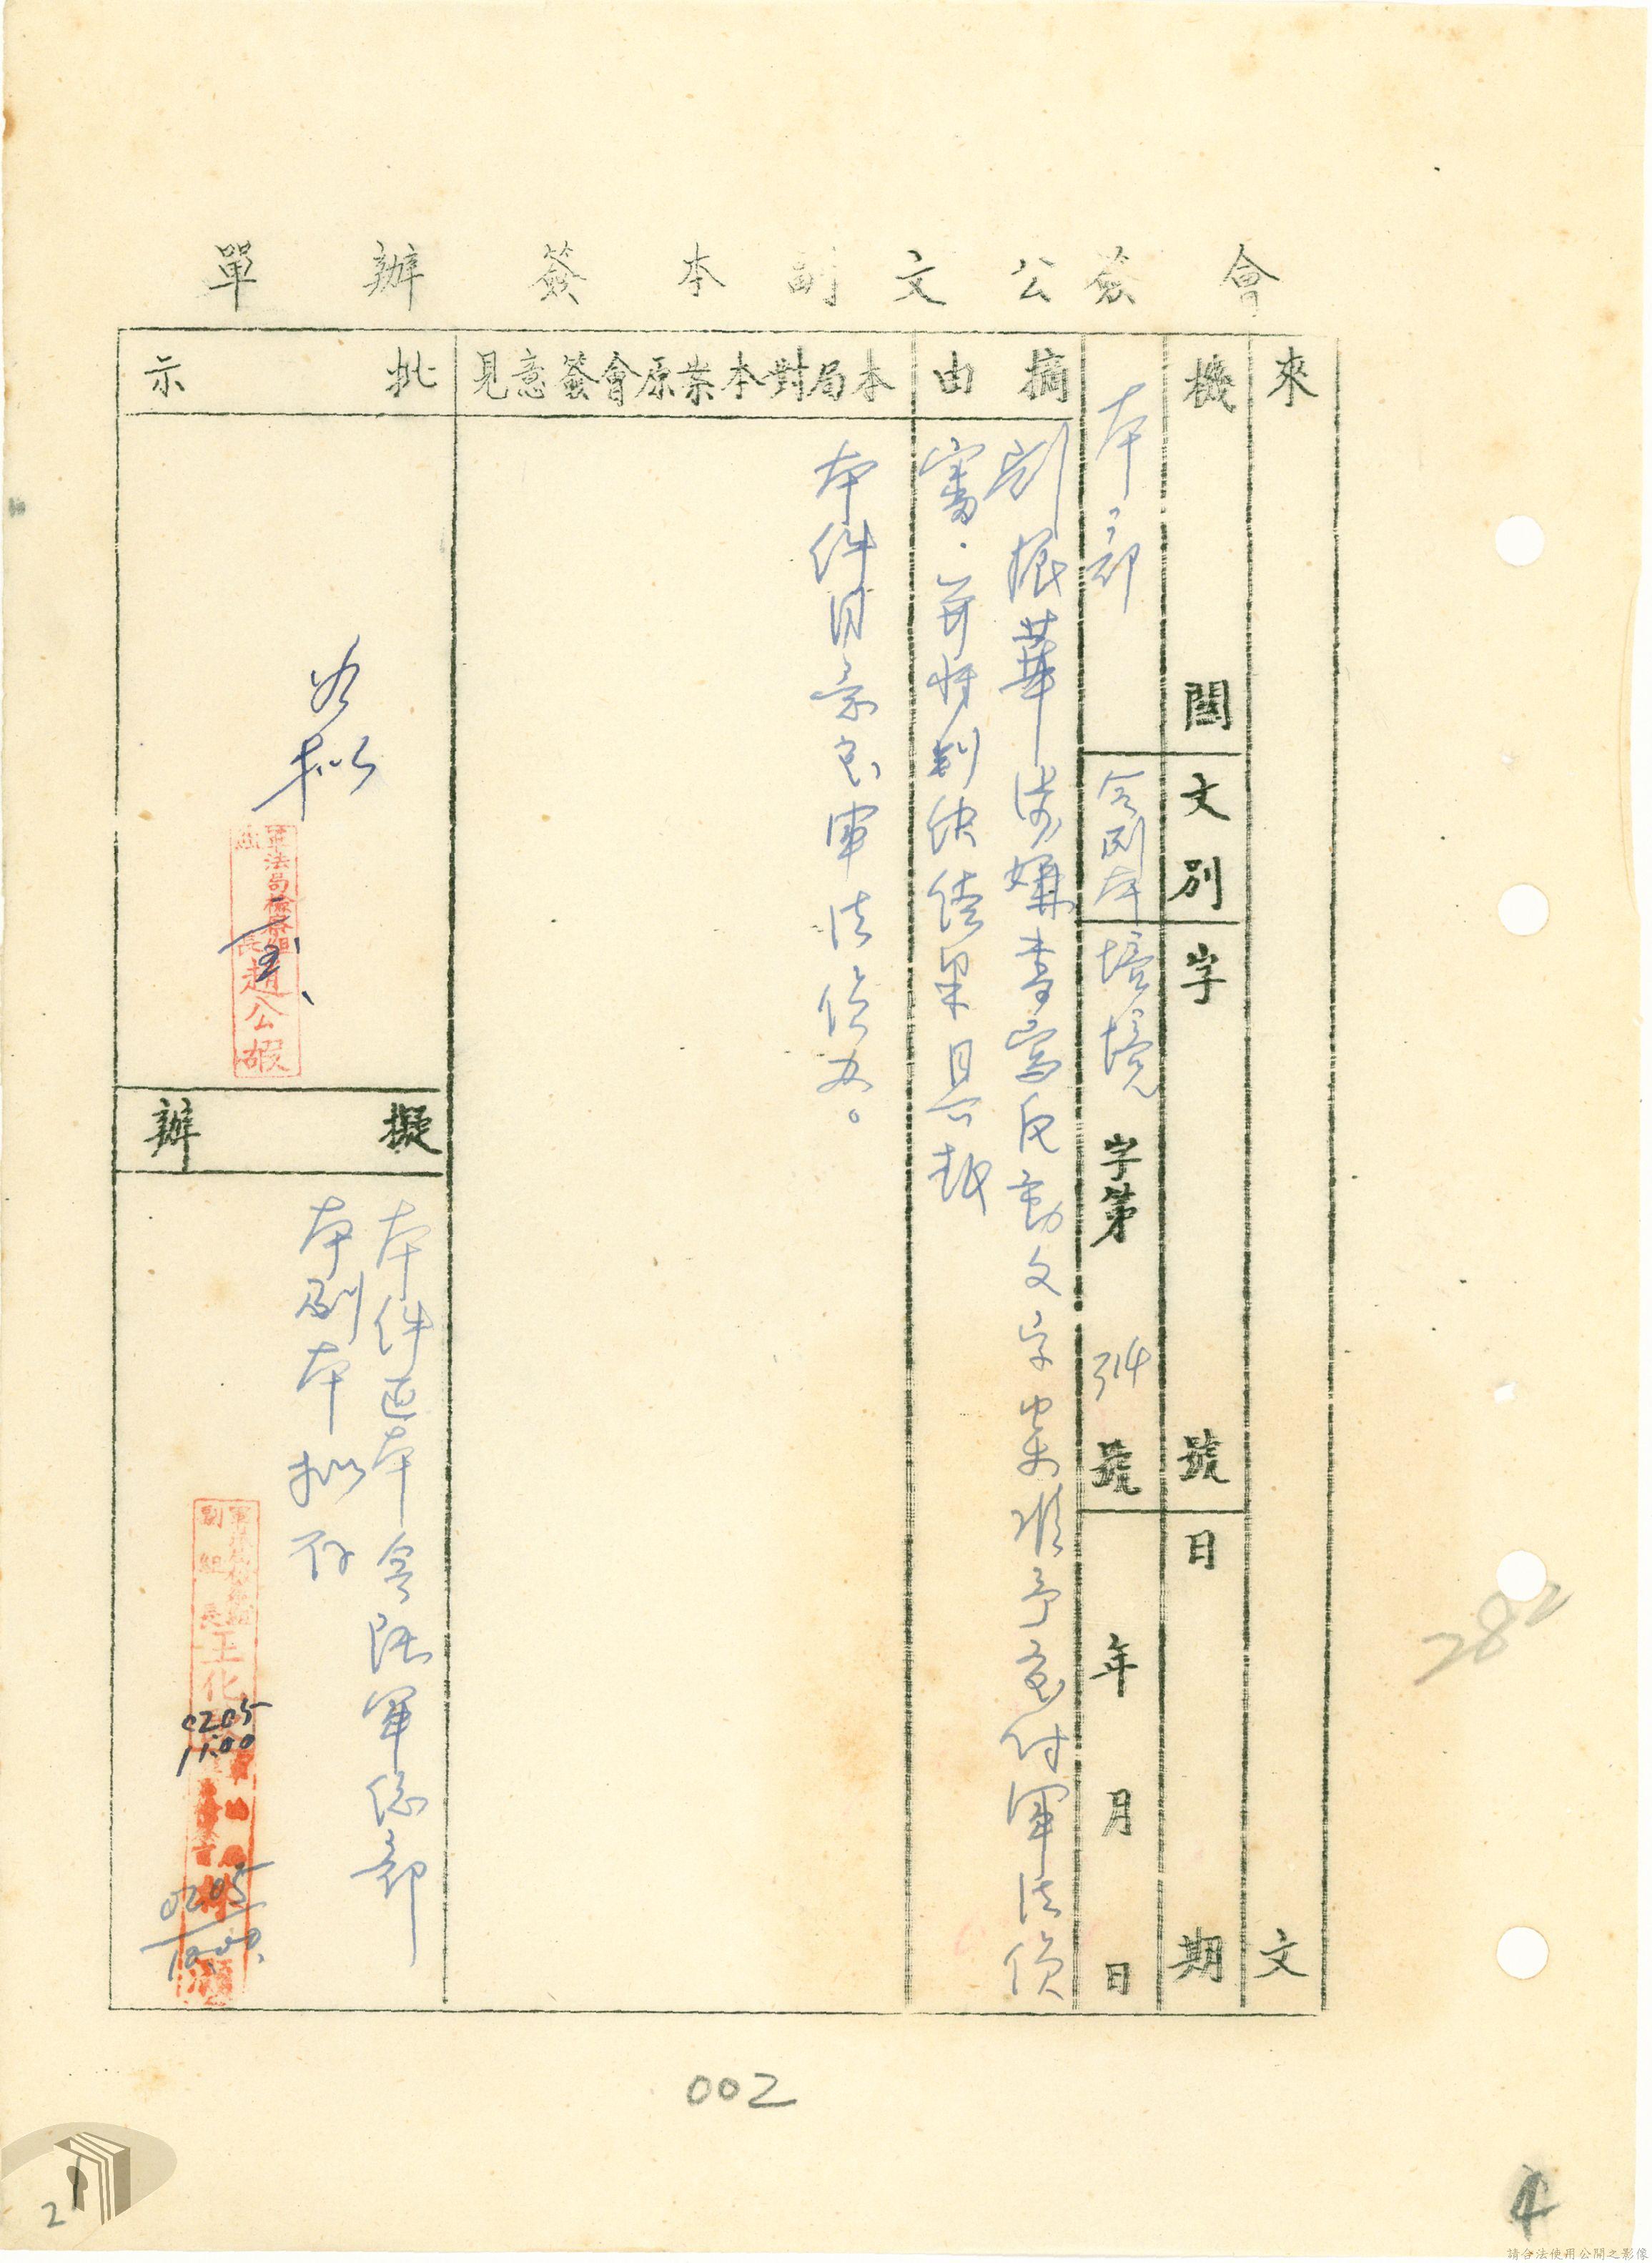 會簽公文副本簽辦單
來文
機關
文別
字號
日期
本部
令副本
字第314號
年月日
摘由
劉振華涉嫌書寫反動文字案准予發付軍法偵
審.並將判決結果具報
本局對本案原會簽意見
本件同意交軍法偵办。
批示
如拟
軍法局檢察組
組長趙公嘏
擬辦
本件正本令陸軍總部
本副本拟存
副組長王化
0205
11:00
0205
10:00
282
002
2
4
請合法使用公開之影像